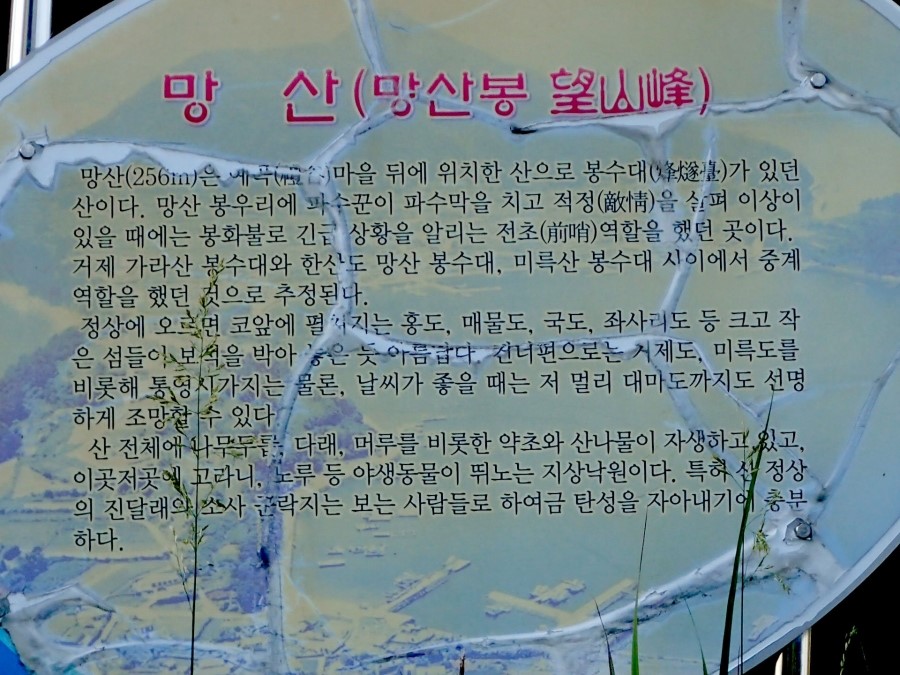 망 산(망산봉 望山峰)
망산(256m)은 예곡(禮谷)마을 뒤에 위치한 산으로 봉수대(烽燧臺)가 있던
산이다. 망산 봉우리에 파수꾼이 파수막을 치고 적정(敵情)을 살펴 이상이
있을 때에는 봉화불로 긴급 상황을 알리는 전초(前哨)역할을 했던 곳이다.
거제 가라산 봉수대와 한산도 망산 봉수대, 미륵산 봉수대 사이에서 중계
역할을 했던 것으로 추정된다.
정상에 오르면 코앞에 펼쳐지는 홍도, 매물도, 국도, 좌사리도 등 크고 작
은 섬들이 보석을 박아 놓은 듯 아름답다. 건너편으로는 거제도, 미륵도를
비롯해 통영시가지는 물론, 날씨가 좋을 때는 저 멀리 대마도까지도 선명
하게 조망할 수 있다
산 전체에 나무두릅, 다래, 머루를 비롯한 약초와 산나물이 자생하고 있고,
이곳저곳에 고라니, 노루 등 야생동물이 뛰노는 지상낙원이다. 특히 산 정상
의 진달래와 군락지는 보는 사람들로 하여금 탄성을 자아내기에 충분
하다.